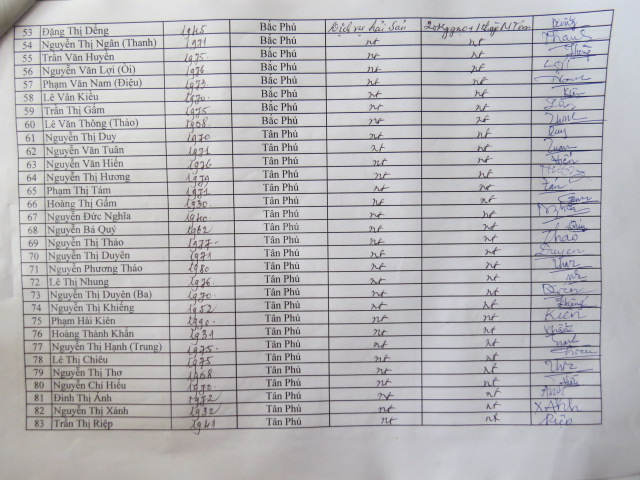 53 Đặng Thị Dếng 1945 Bắc Phú Dịch vụ hải sản
54 Nguyễn Thị Ngân (Thanh) 1971 Bắc Phú nt nt Thanh
55 Trần Văn Huyền 1975 Bắc Phú nt nt
56 Nguyễn Văn Lợi (Ói) 1976 Bắc Phú nt nt Lợi
57 Phạm Văn Nam (Điệu) 1973 Bắc Phú nt nt
58 Lê Văn Kiều Bắc Phú nt nt
59 Trần Thị Gấm 1955 Bắc Phú nt nt
60 Lê Văn Thông (Thảo) 1968 Bắc Phú nt nt
61 Nguyễn Thị Duy 1970 Tân Phú nt nt Duy
62 Nguyễn Văn Tuân 1971 Tân Phú nt nt Tuân
63 Nguyễn Văn Hiển 1976 Tân Phú nt nt Hiển
64 Nguyễn Thị Hương 1979 Tân Phú nt nt
65 Phạm Thị Tám 1971 Tân Phú nt nt
66 Hoàng Thị Gấm 1930 Tân Phú nt nt
67 Nguyễn Đức Nghĩa 1940 Tân Phú nt nt
68 Nguyễn Bá Quý 1962 Tân Phú nt nt Quý
69 Nguyễn Thị Thảo 1977 Tân Phú nt nt Thảo
70 Nguyễn Thị Duyên 1971 Tân Phú nt nt Duyên
71 Nguyễn Phương Thảo 1980 Tân Phú nt nt
72 Lê Thị Nhung 1976 Tân Phú nt nt
73 Nguyễn Thị Duyên (Ba) 1970 Tân Phú nt nt
74 Nguyễn Thị Khiếng 1952 Tân Phú nt nt
75 Phạm Hải Kiên 1990 Tân Phú nt nt Kiên
76 Hoàng Thành Khẩn 1931 Tân Phú nt nt
77 Nguyễn Thị Hạnh (Trung) 1975 Tân Phú nt nt
78 Lê Thị Chiêu 1975 Tân Phú nt nt
79 Nguyễn Thị Thơ 1968 Tân Phú nt nt
80 Nguyễn Chí Hiếu 1970 Tân Phú nt nt
81 Đinh Thị Ánh 1972 Tân Phú nt nt
82 Nguyễn Thị Xánh 1932 Tân Phú nt nt XÁNH
83 Trần Thị Riệp 1941 Tân Phú nt nt Riệp